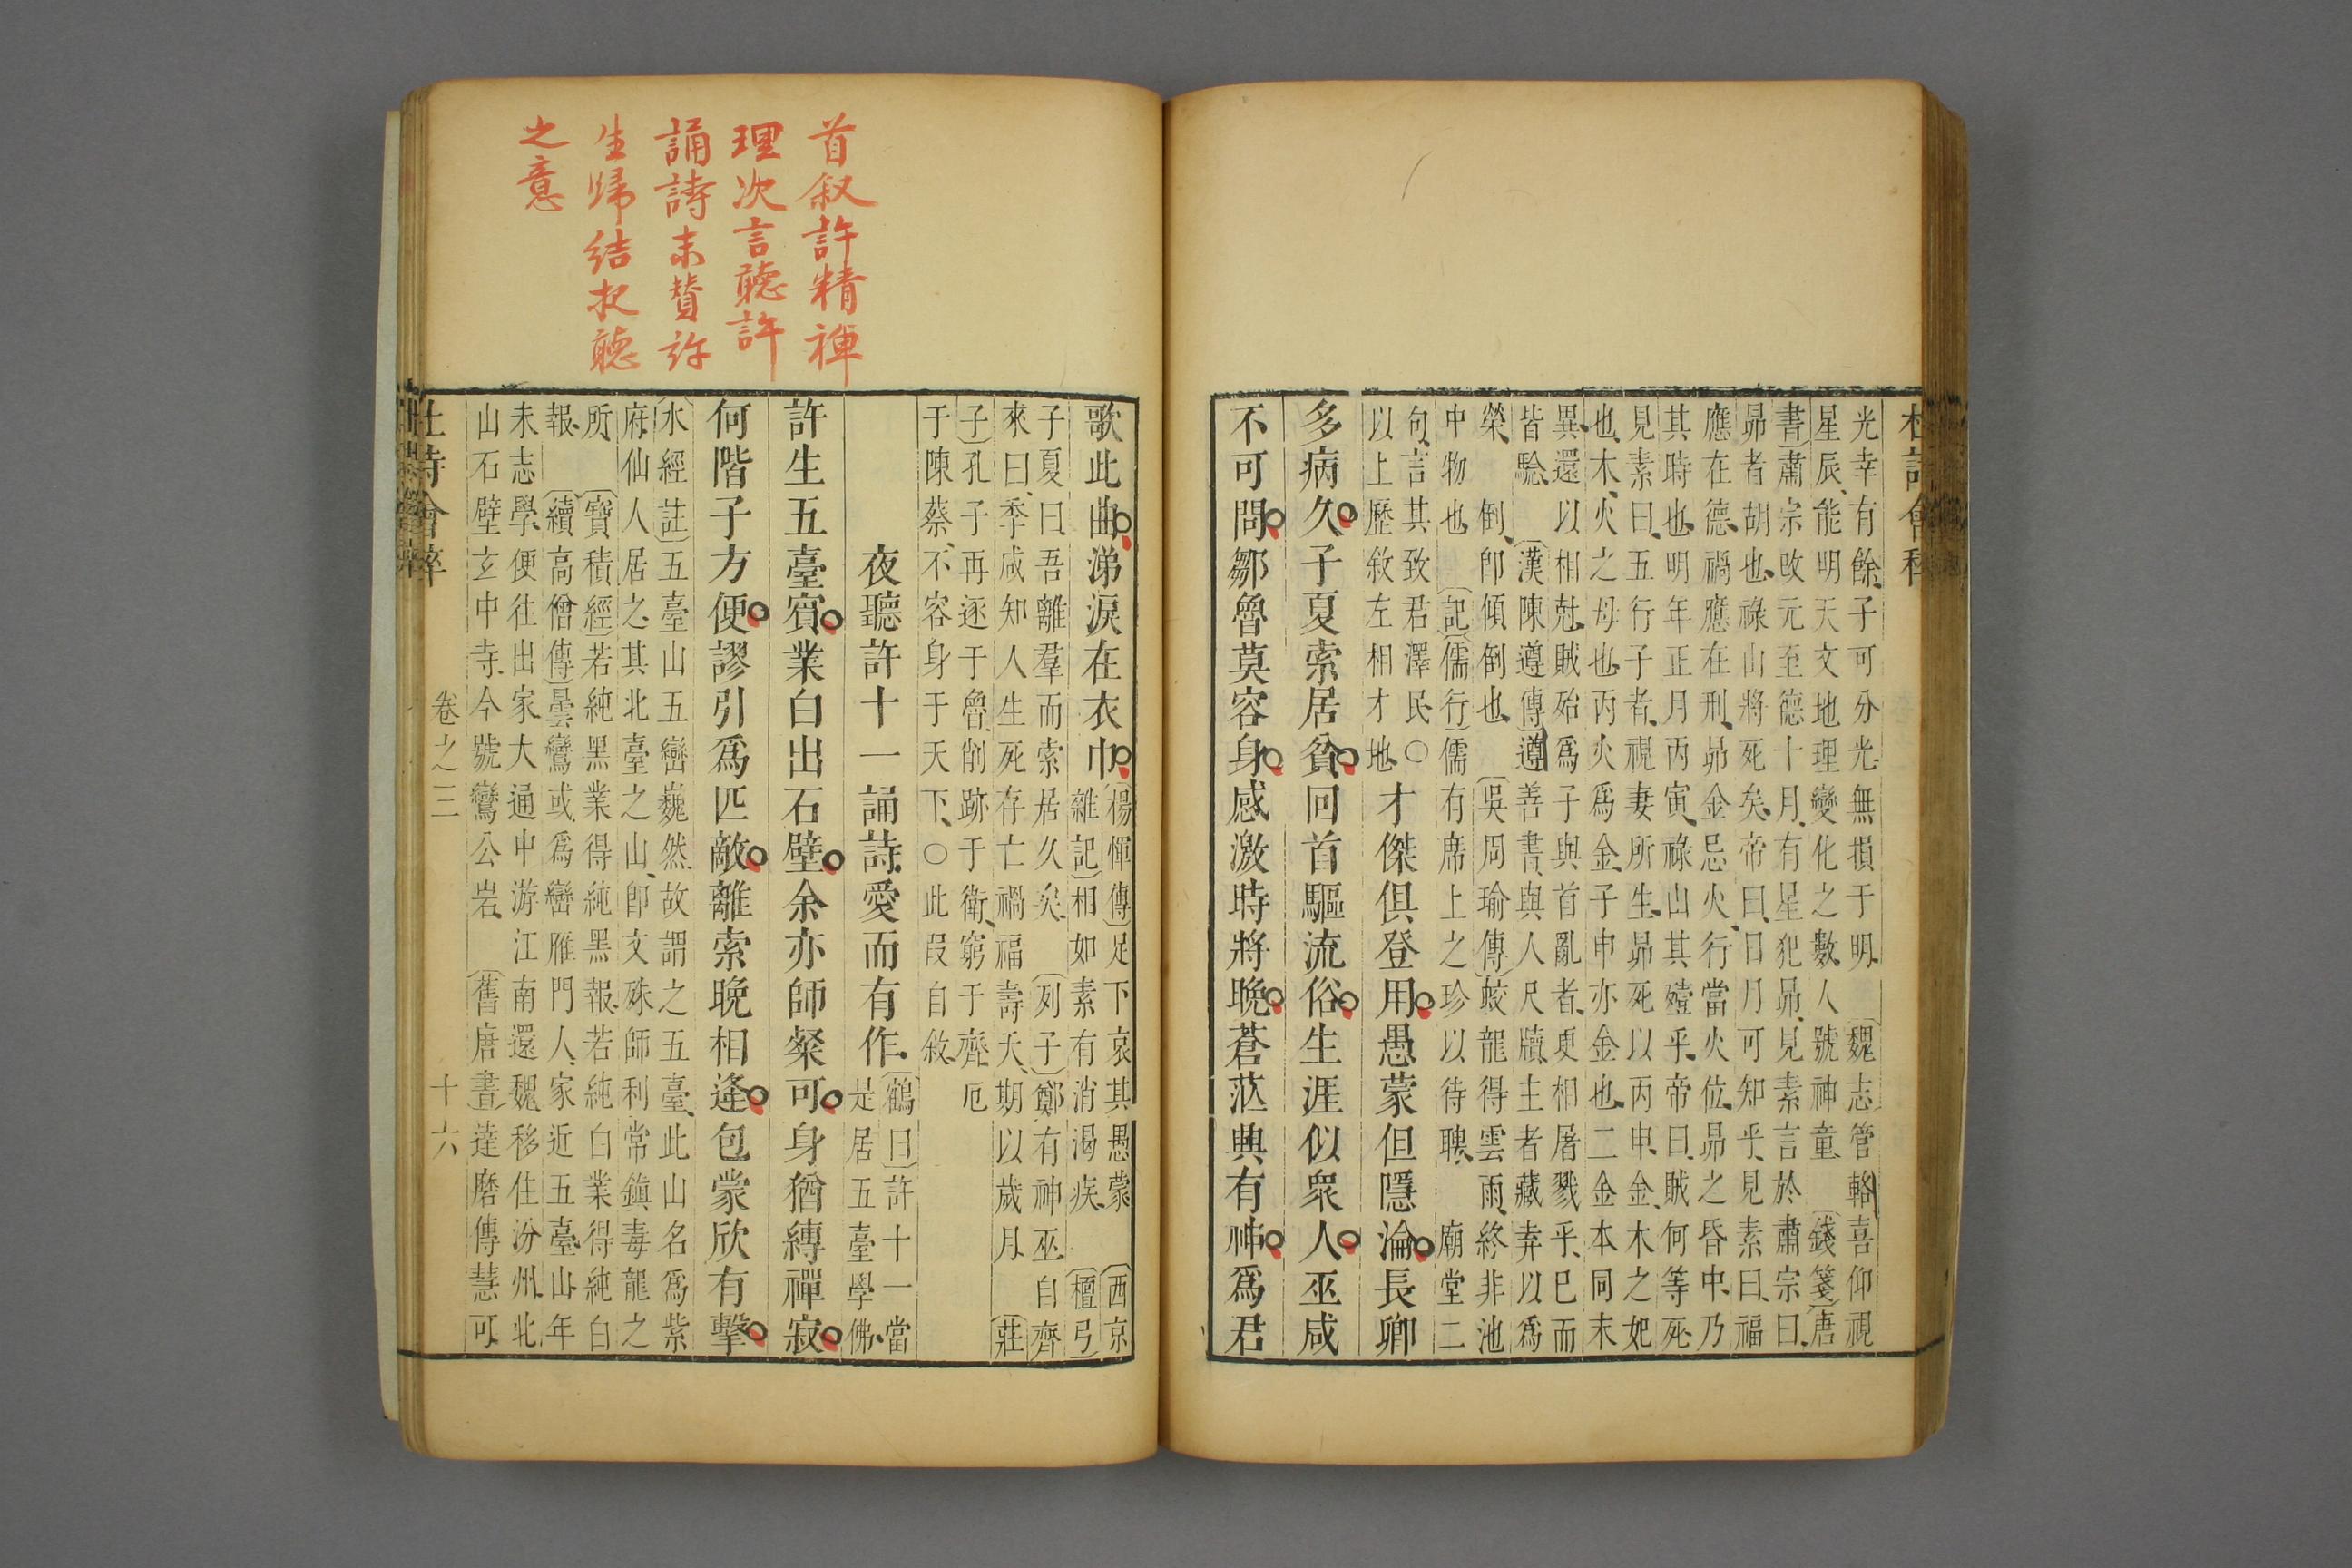 杜詩會稡
光幸有餘子可分光無損于明〔魏志〕管輅喜仰視
星辰能明天文地理變化之數人號神童〔錢箋〕唐
書〕肅宗改元至德十月有星犯昴見素言於肅宗曰
昴者胡也祿山將死矣帝曰日月可知乎見素曰福
應在德禍應在刑昴金忌火行當火位昴之昏中乃
其時也明年正月丙寅祿山其殪乎帝曰賊何等死
見素曰五行子者視妻所生昴死以丙申金木之妃
也木火之母也丙火爲金子申亦金也二金本同末
異還以相尅賊殆爲子與首亂者更相屠戮乎已而
皆驗〔漢陳遵傳〕遵善書與人尺牘主者藏弆以爲
榮倒卽傾倒也〔吳周瑜傳〕蛟龍得雲雨終非池
中物也〔記〕儒行〕儒有席上之珍以待聘廟堂二
句言其致君澤民〇
以上歷敘左相才地
才傑俱登用愚蒙但隱淪長卿
多病久子夏索居貧回首驅流俗生涯似衆人巫咸
不可問鄒魯莫容身感激時將晚蒼茫興有神爲君
首叙許精禪
理次言聽許
誦詩末贊許
生歸結拟聽
之意
歌此曲涕淚在衣巾
〔楊惲傳〕足下哀其愚蒙〔西京
雜記〕相如素有消渴疾〔檀弓〕
子夏曰吾離羣而索居久矣〔列子〕鄭有神巫自齊
來曰季咸知人生死存亡禍福壽夭期以歲月〔莊
子〕孔子再逐于魯削跡于衛窮于齊厄
于陳蔡不容身于天下〇此段自敘
夜聽許十一誦詩愛而有作
〔鶴曰〕許十一當
是居五臺學佛
許生五臺賓業白出石壁余亦師粲可身猶縛禪寂
何階子方便謬引爲匹敵離索晚相逢包蒙欣有擊
〔水經註〕五臺山五巒巍然故謂之五臺此山名爲紫
府仙人居之其北臺之山卽文殊師利常鎮毒龍之
所〔寶積經〕若純黑業得純黑報若純白業得純白
報〔續高僧傳〕曇鸞或爲巒雁門人家近五臺山年
未志學便往出家大通中游江南還魏移住汾州北
山石壁玄中寺今號鸞公岩〔舊唐書〕達磨傳慧可
杜詩會稡
卷之三
十六